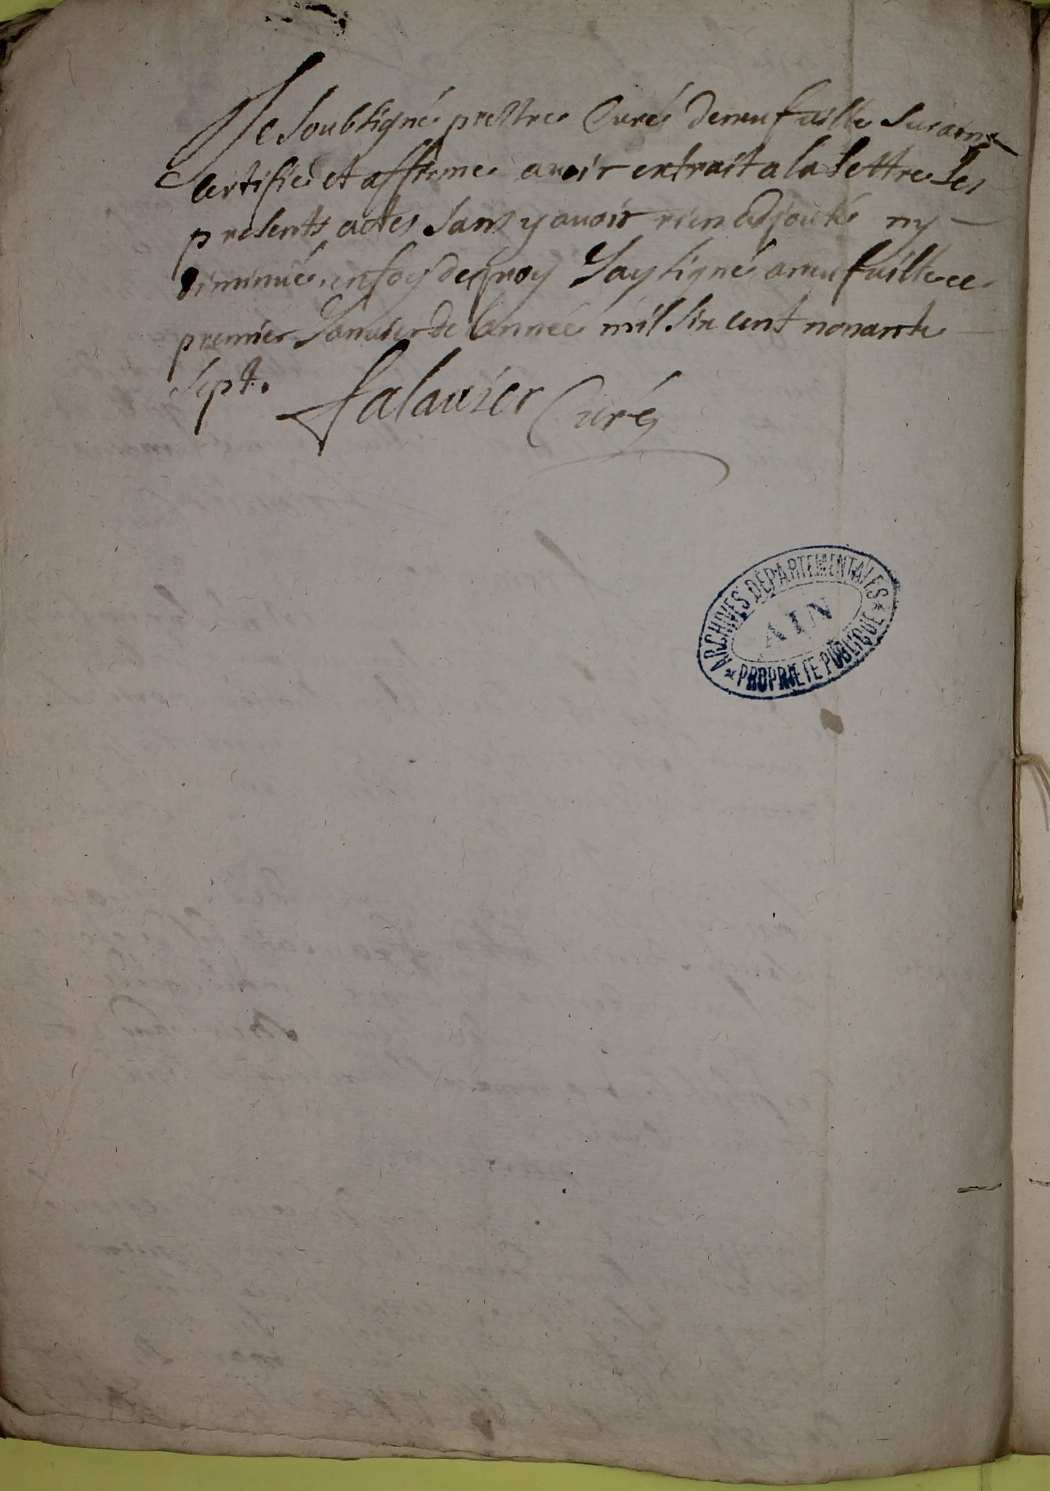 Je soubsigné prestre Curé de neufuille sur ains
certifie et affirme auoir extrait a la lettre les
presents actes sans y auoir rien adjouté ny
diminué, en foy de quoy J'ay signé a neufuille ce
premier Januier de l'année mil six cent nonante
sept.
falauier Curé
ARCHIVES DÉPARTEMENTALES
AIN
PROPRIÉTÉ PUBLIQUE